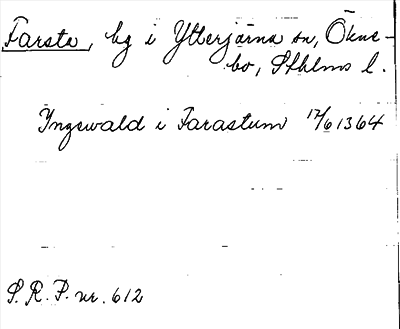 Farsta, hg i Ytterjärna sn, Ökne-
bo, Sthlms l.
Ingewald i Farastum 17/6 1364
S.R.P. nr. 612